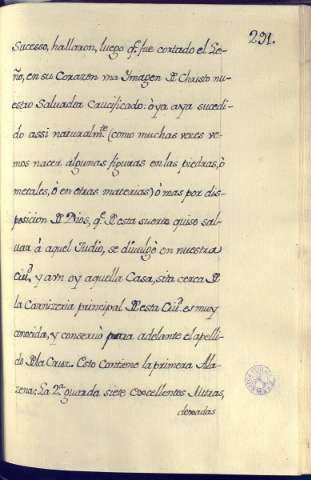 291.
Sucesso, hallaron, luego q̃. fue cortado el Le-
ño, en su Corazon una Imagen D Christo nu-
estro Salvador Crucificado: ò ya aya sucedi-
do assi naturalmte. (como muchas veces ve-
mos nacer algunas figuras en las piedras, ò
metales, ò en otras materias) ò mas por dis-
posicion D Dios, q̃. D esta suerte quiso sal-
var à aquel Judio, se divulgò en nuestra
Ciud. y aun oy aquella Casa, sita cerca D
la Carnizeria principal D esta Ciud. es muy
conocida, y conservò para adelante el apelli-
do D la Cruz. Esto contiene la primera Ala-
zena; La 2ª. guarda siete Excellentes Mitras,
donadas